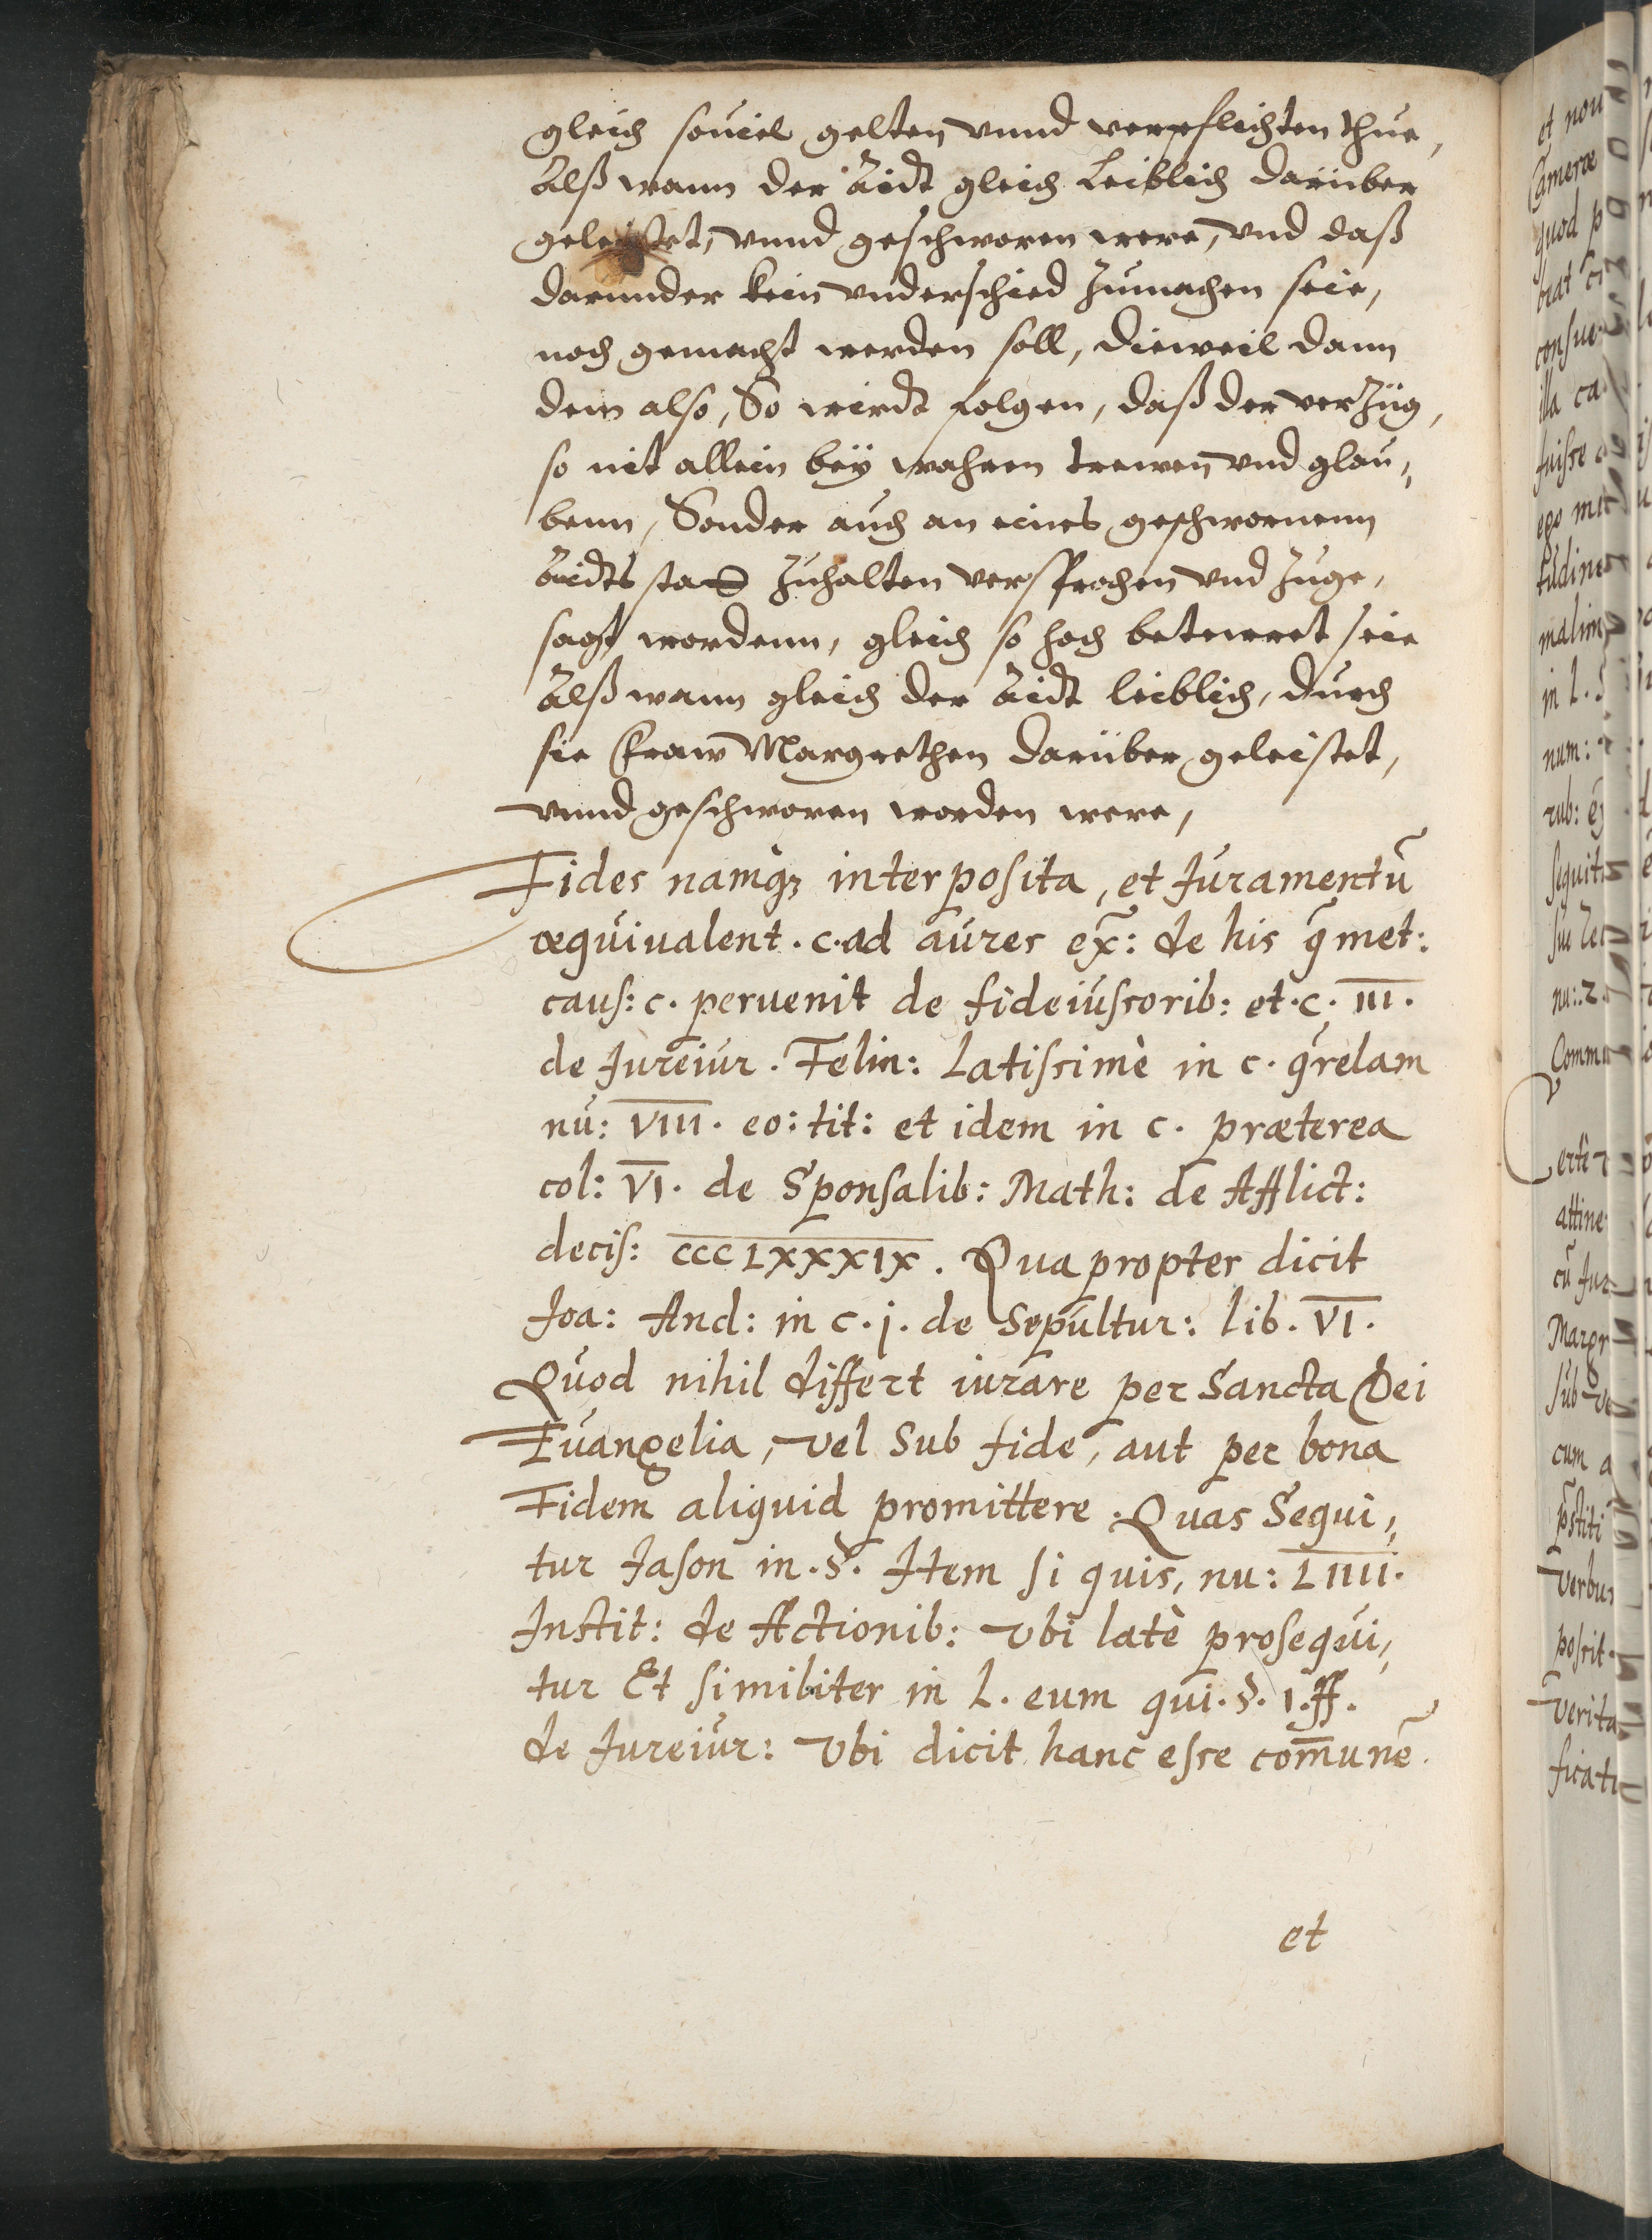 gleich souiel gelten vnnd verpflichten thue,
Alß wann der Aidt gleich Leiblich darüber
geleistet, vnnd geschworen were, vnd daß
darunder kein vnderschied zumachen seie,
noch gemacht werden soll, dieweil dann
dem also, So wirdt folgen, daß der verzüg,
so nit allein beÿ wahren trewen vnd glau,
benn, Sonder auch an eines geschwornenn
Aidts statt zuhalten versprochen vnd zuge,
sagt wordenn, gleich so hoch betewret seie
Alß wann gleich der Aidt leiblich, durch
sie Fraw Margrethen darüber geleistet,
vnnd geschworen worden were,
Fides namqꝫ interposita, et Iuramentū
æquiualent. c. ad aures ex̄: de his q̄ met:
caus: c. peruenit de fideiussorib: et. c. III.
de Iureiur. Felin: Latissimè in c. q̄relam
nu: VIII. eo: tit: et idem in c. præterea
col: VI. de Sponsalib: Math: de Afflict:
decis: CCCLXXXIX. Qua propter dicit
Ioa: And: in c. j. de Sepultur: lib. VI.
Quod nihil differt iurare per Sancta Dei
Euangelia, vel Sub fide, aut per bona
Fidem aliquid promittere. Quas Sequi,
tur Iason in. §. Item si quis, nu: LIIII.
Instit: de Actionib: vbi latè prosequi,
tur Et similiter in L. eum qui. §. 1. ff.
de Iureiur: vbi dicit hanc esse com̄unē.
et
et nou
Cameræ
quod p
consue
illa ca
fuisse
ego
tudine
in L.
num:
rub:
sequit
nu: 2.
attine
cū Iur
Margr
sub ve
cum a
verbu
possit.
verita
ficati